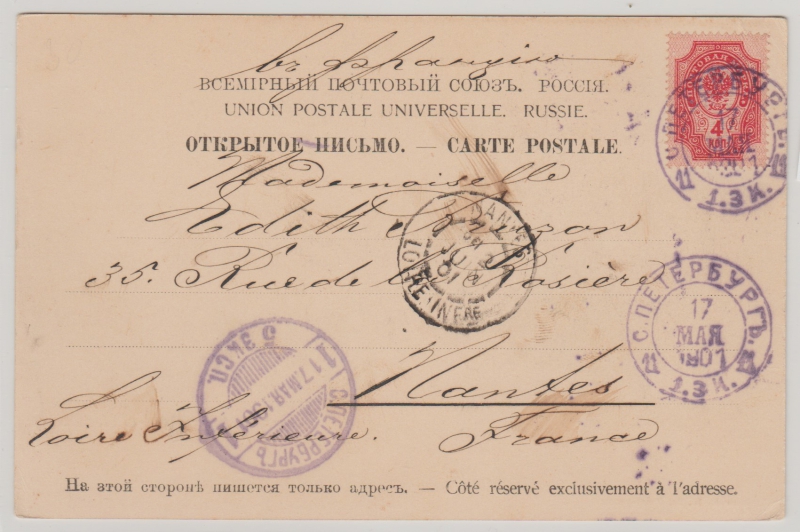 въ Францію
ВСЕМІРНЫЙ ПОЧТОВЫЙ СОЮЗЪ. РОССІЯ.
UNION POSTALE UNIVERSELLE. RUSSIE.
ОТКРЫТОЕ ПИСЬМО. — CARTE POSTALE.
Mademoiselle
Edith
35. Rue de la Rosière
Nantes
Loire Inférieure. France
На этой сторонѣ пишется только адресъ. — Côté réservé exclusivement à l'adresse.
4
КОП.
С.ПЕТЕРБУРГЪ.
17
МАЯ
1.Э К.
NANTES
LOIRE INFRE
С.ПЕТЕРБУРГЪ.
17
МАЯ
1901
1.Э К.
С.ПЕТЕРБУРГЪ
17 МАЯ
6 ЭКСП.